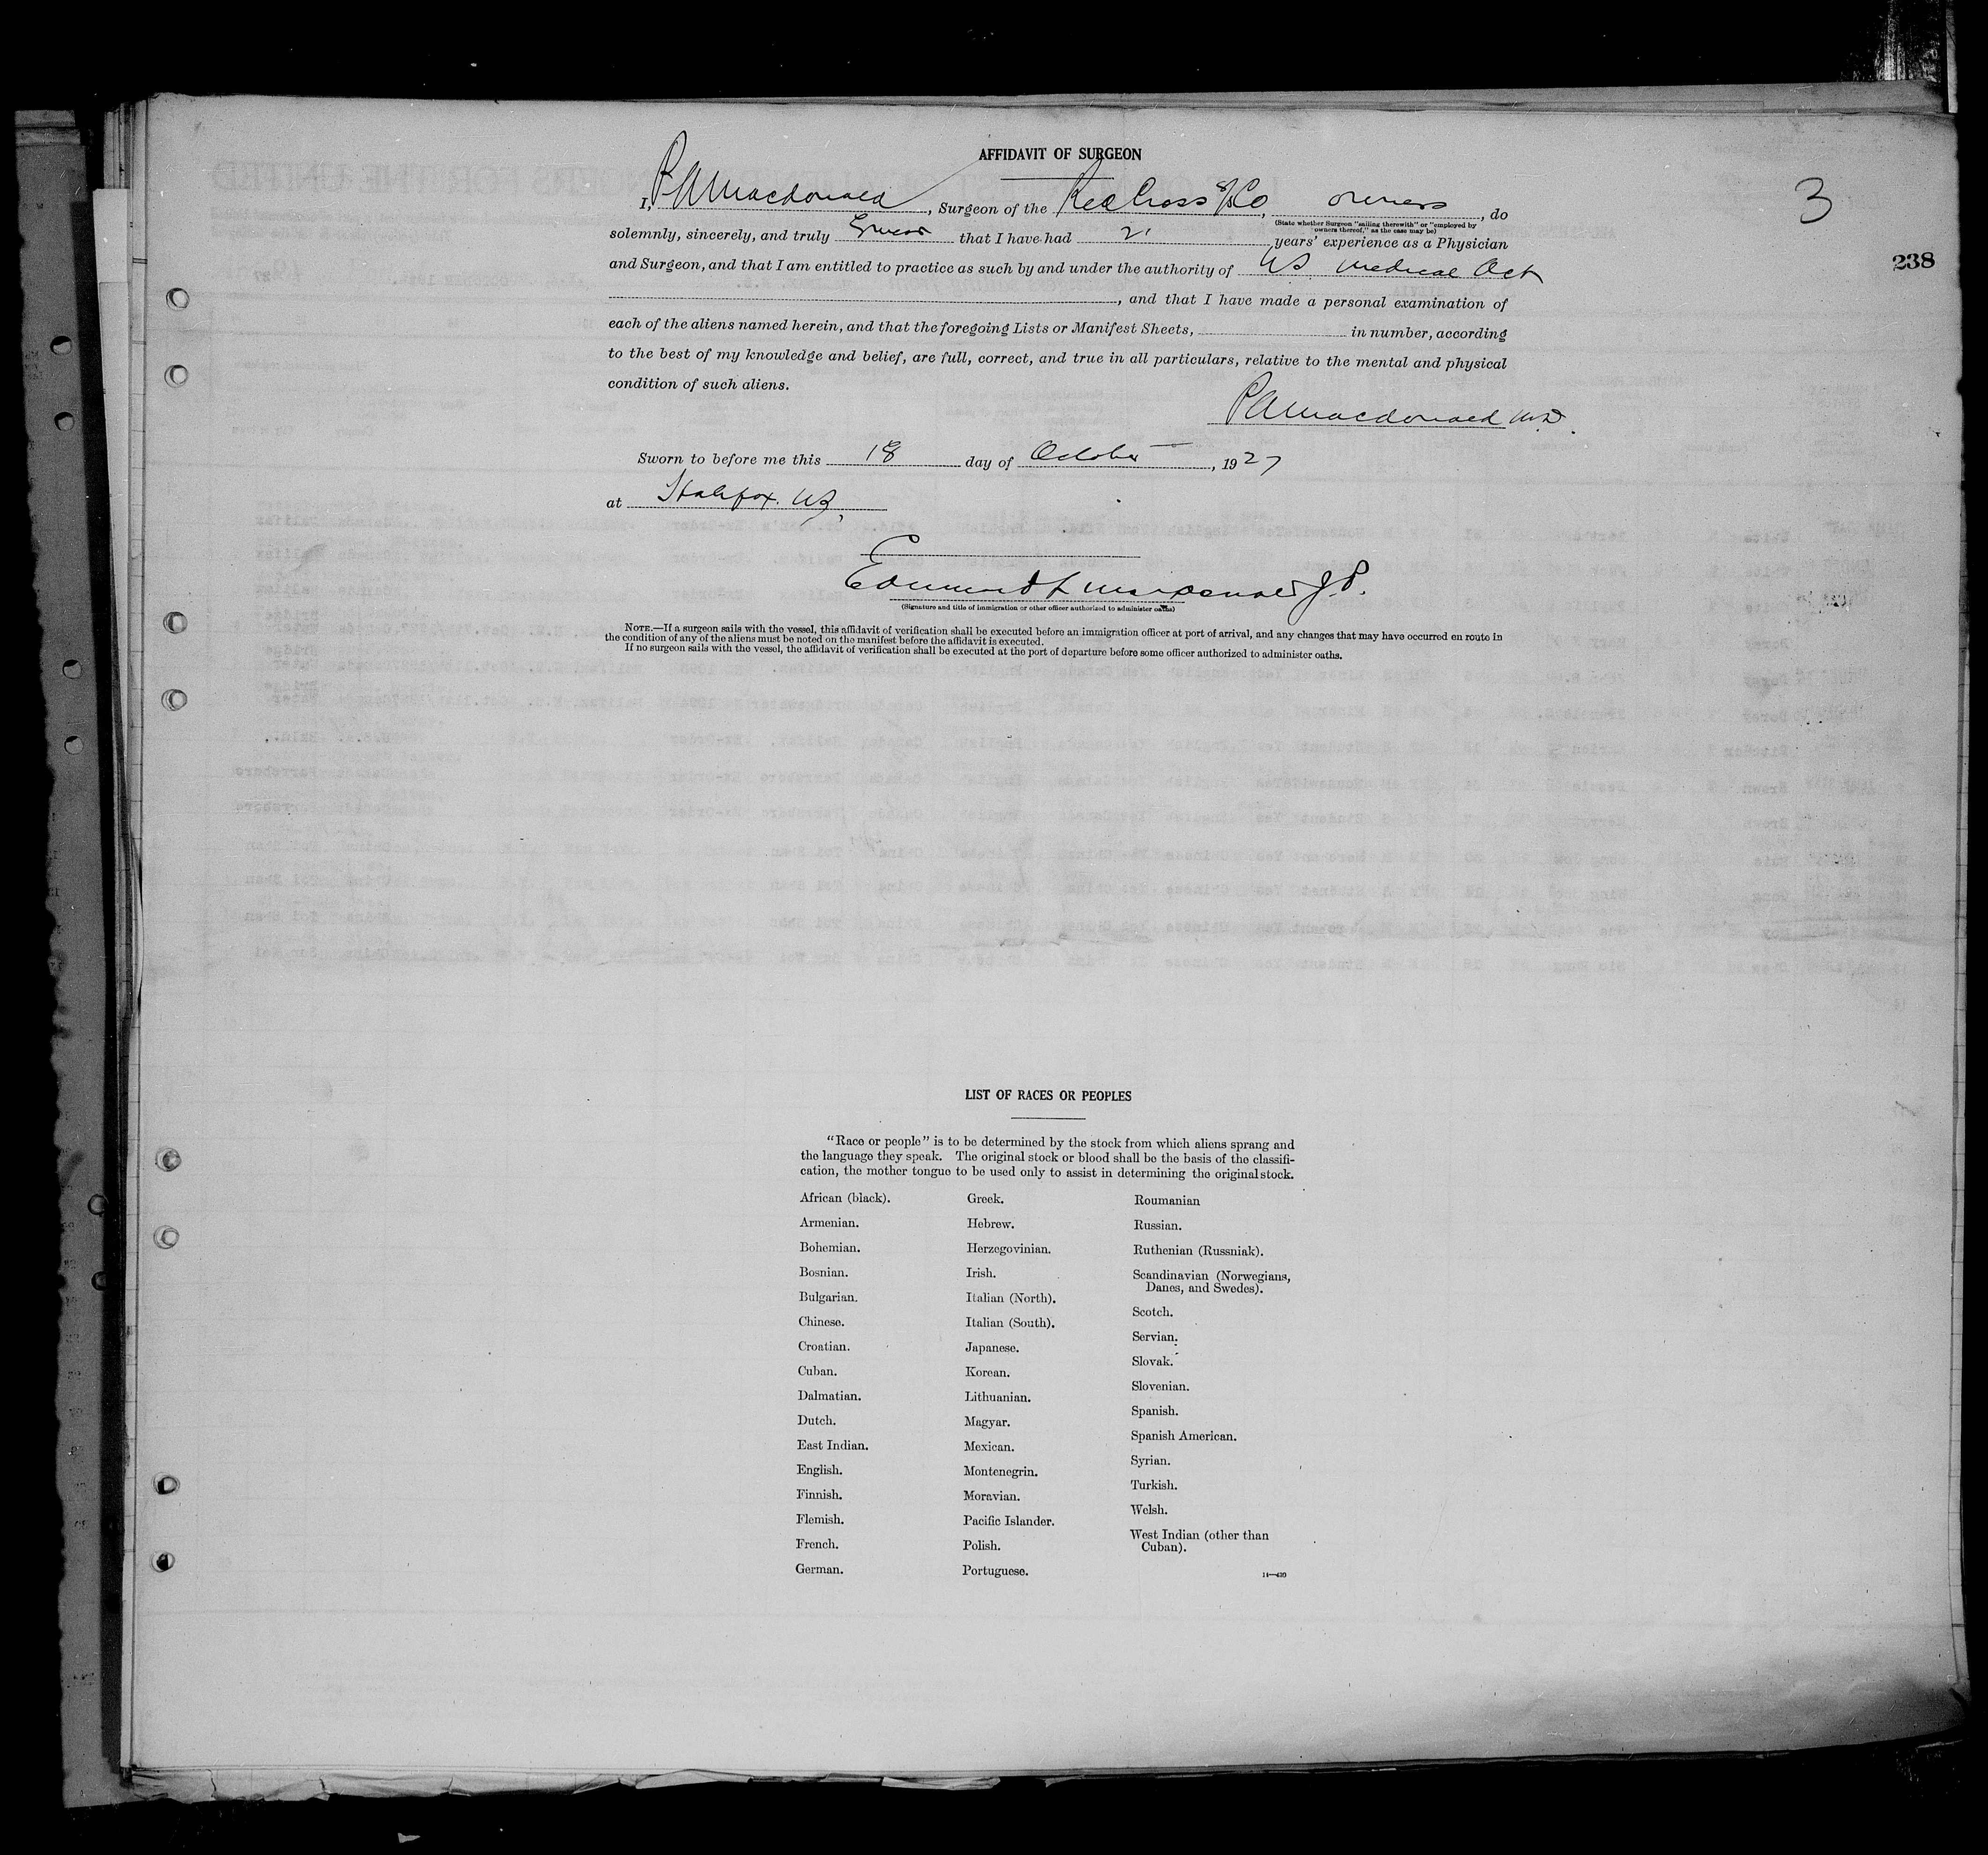 AFFIDAVIT OF SURGEON
3
I, P A Macdonald, Surgeon of the Red Cross S/S Co, owners, do
(State whether Surgeon "sailing therewith" or "employed by
owners thereof," as the case may be)
solemnly, sincerely, and truly Swear that I have had 21 years' experience as a Physician
238
and Surgeon, and that I am entitled to practice as such by and under the authority of NS Medical Act
, and that I have made a personal examination of
each of the aliens named herein, and that the foregoing Lists or Manifest Sheets, in number, according
to the best of my knowledge and belief, are full, correct, and true in all particulars, relative to the mental and physical
condition of such aliens.
P A Macdonald M.D.
Sworn to before me this 18 day of October, 1927
at Halifax. NS,
Edmund J.P.
(Signature and title of immigration or other officer authorized to administer oaths)
NOTE.—If a surgeon sails with the vessel, this affidavit of verification shall be executed before an immigration officer at port of arrival, and any changes that may have occurred en route in
the condition of any of the aliens must be noted on the manifest before the affidavit is executed.
If no surgeon sails with the vessel, the affidavit of verification shall be executed at the port of departure before some officer authorized to administer oaths.
LIST OF RACES OR PEOPLES
"Race or people" is to be determined by the stock from which aliens sprang and
the language they speak. The original stock or blood shall be the basis of the classifi-
cation, the mother tongue to be used only to assist in determining the original stock.
African (black).
Armenian.
Bohemian.
Bosnian.
Bulgarian.
Chinese.
Croatian.
Cuban.
Dalmatian.
Dutch.
East Indian.
English.
Finnish.
Flemish.
French.
German.
Greek.
Hebrew.
Herzegovinian.
Irish.
Italian (North).
Italian (South).
Japanese.
Korean.
Lithuanian.
Magyar.
Mexican.
Montenegrin.
Moravian.
Pacific Islander.
Polish.
Portuguese.
Roumanian
Russian.
Ruthenian (Russniak).
Scandinavian (Norwegians,
Danes, and Swedes).
Scotch.
Servian.
Slovak.
Slovenian.
Spanish.
Spanish American.
Syrian.
Turkish.
Welsh.
West Indian (other than
Cuban).
14—430